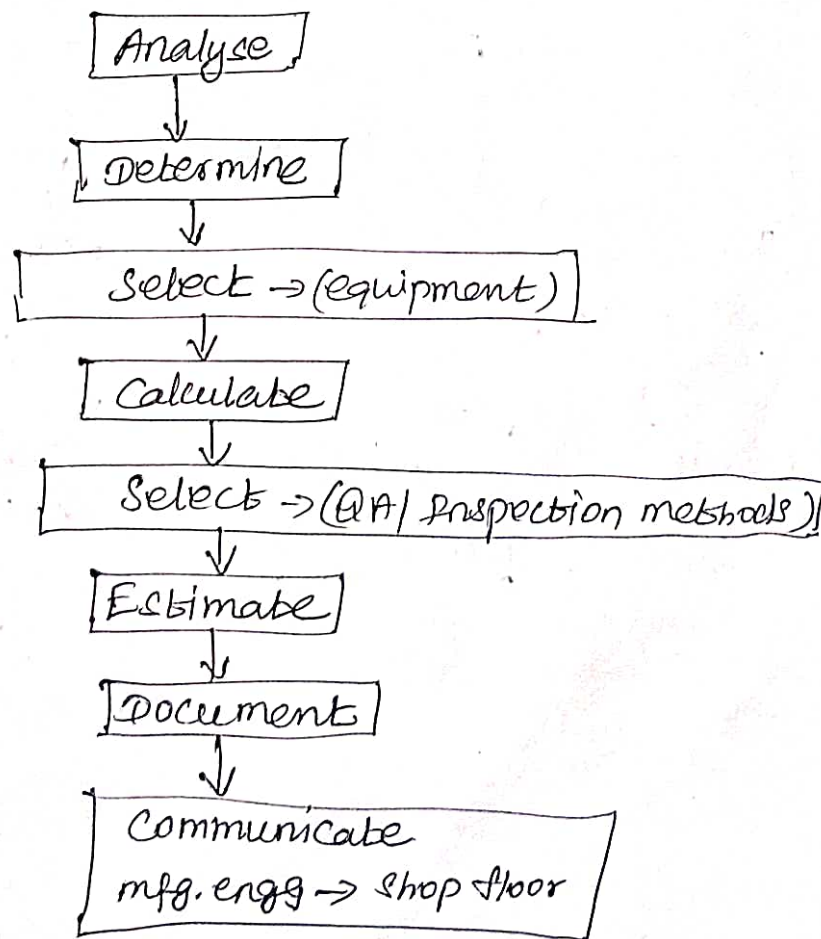 Analyse
Determine
Select → (equipment)
Calculate
Select → (QA/ Inspection methods)
Estimate
Document
Communicate
mfg. engg → shop floor